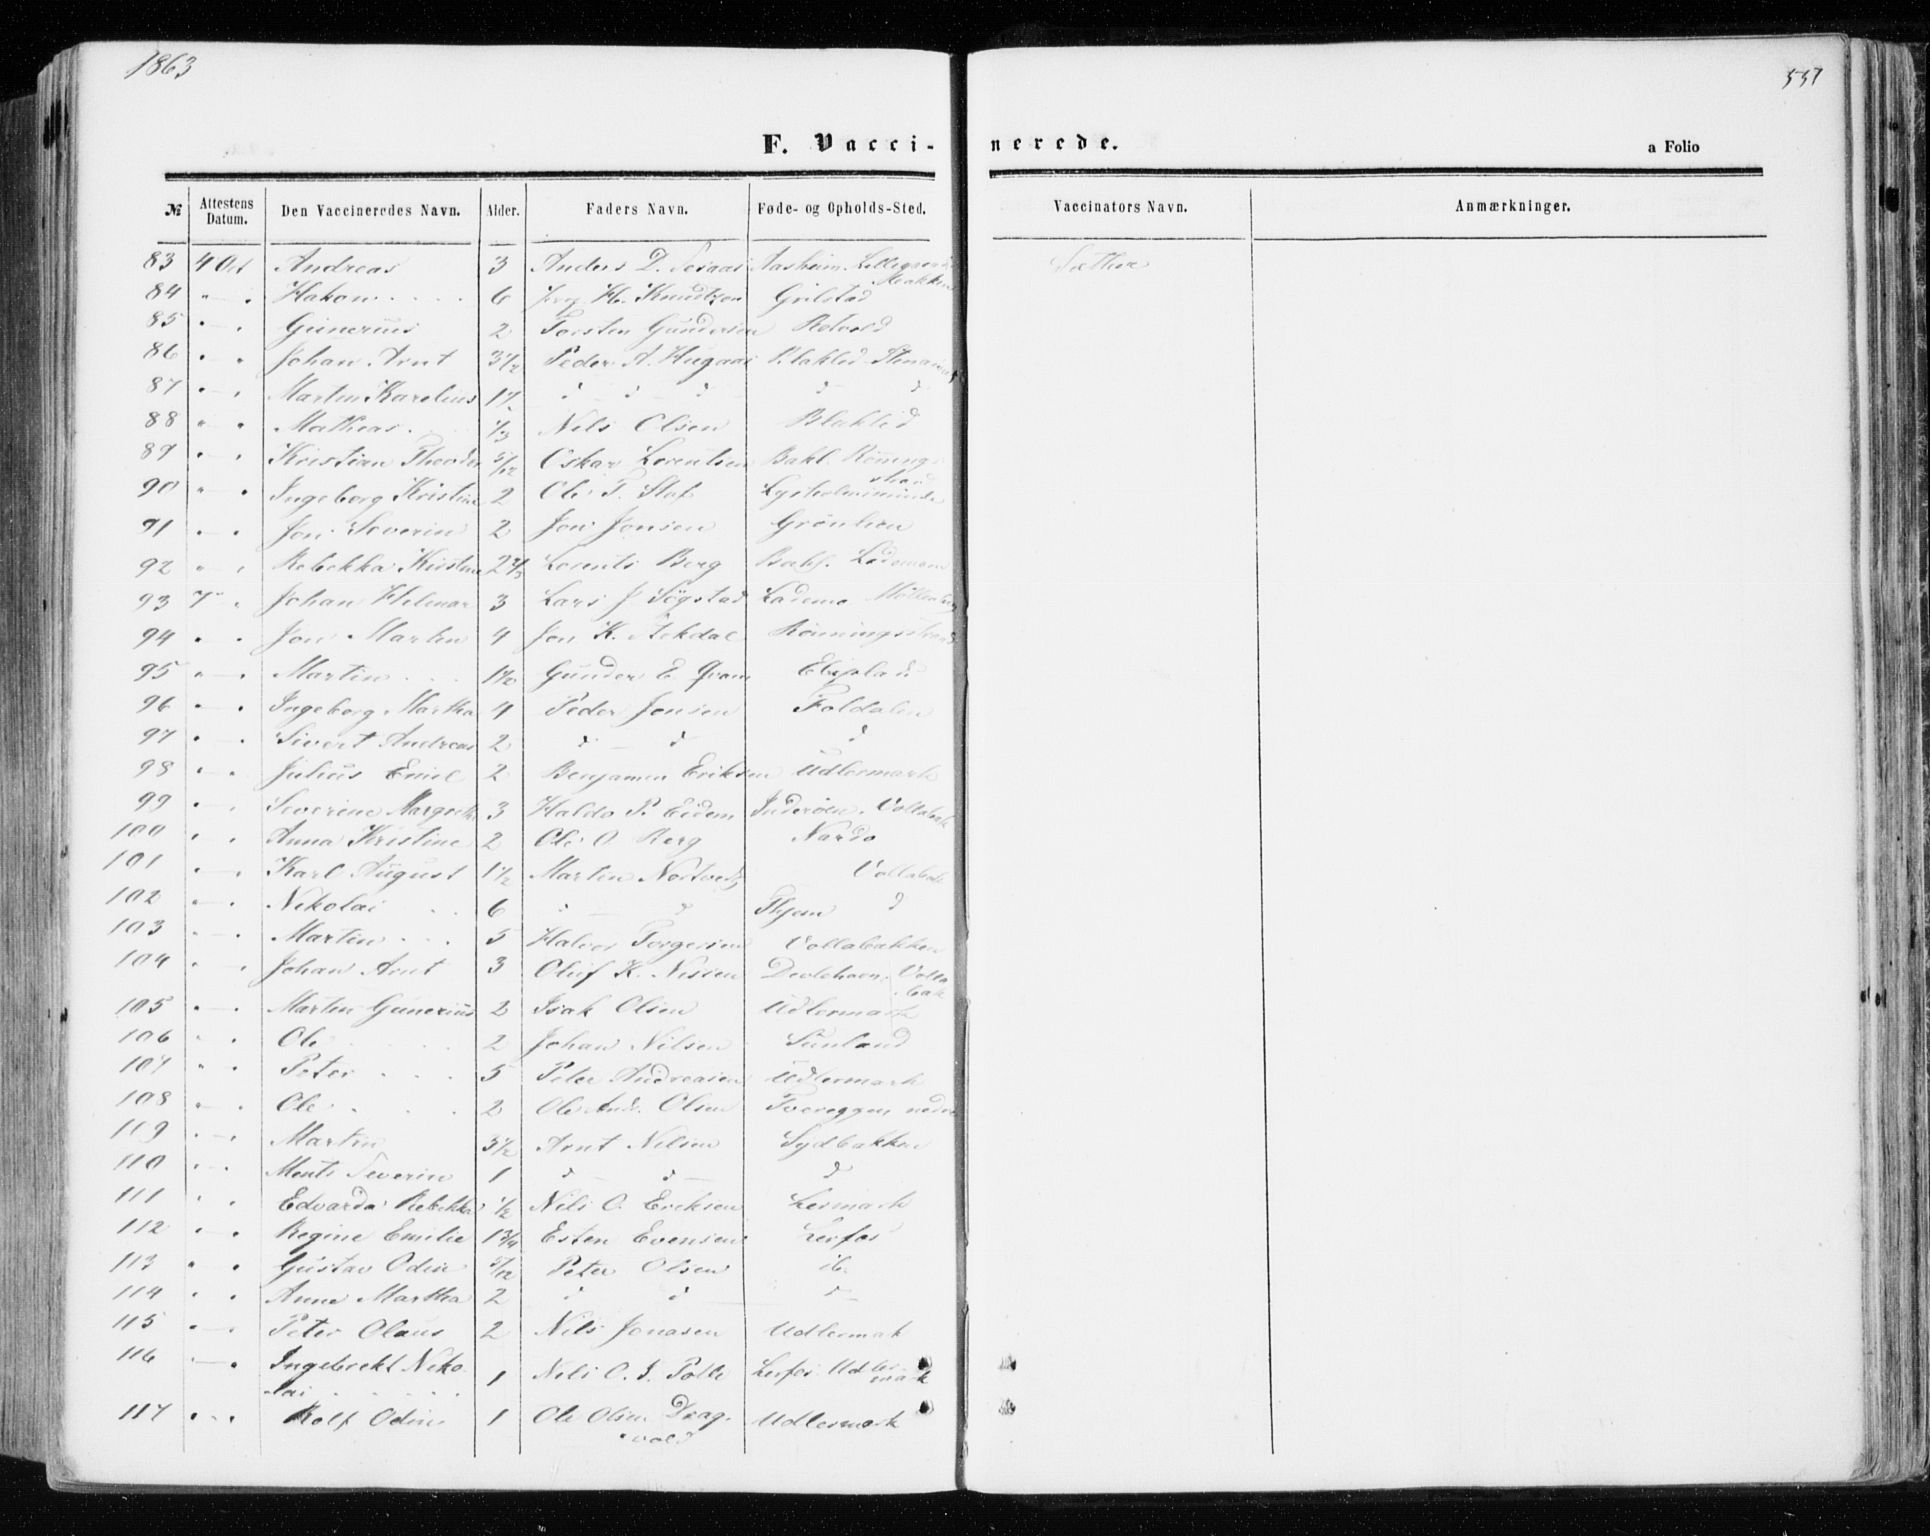 1863
557
F. Vacci-nerede.
a Folio
№ Attestens Datum. Den Vaccineredes Navn. Alder. Faders Navn. Føde- og Opholds-Sted. Vaccinators Navn. Anmærkninger.
83 4 Oct Andreas 3 Anders D. Aasheim.
84 " " Hakon 6 H. Knudtzon Grilstad
85 " " Gunerius 2 Torsten Gundersen Rotvold
86 " " Johan Arnt 3 1/2 Peder A. Hugaas Blaklid
87 " " Martin Karelius d d d d d
88 " " Mathias 1/3 Nils Olsen Blaklid
89 " " Kristian Theodor 5/12 Oskar Lorentsen Bakl. Rønning-
strand
90 " " Ingeborg Kristine 2 Ole P. Lysholmsminde
91 " " Jon Severin 2 Jon Jonsen Grønlien
92 " " Rebekka Kirstine 2 2/3 Lorents Berg Bakl. Lademoen
93 7 " Johan Helmar 3 Lars J. Søgstad Lademo Møllenberg
94 " " Jon Martin 4 Jon K. Aekdal Rønningsstrand
95 " " Martin 1 1/2 Gunder E. Qvam
96 " " Ingeborg Martha 4 Peder Jonsen Foldalen
97 " " Sivert Andreas 2 d d d
98 " " Julius Emil 2 Benjamin Eriksen Udlermark
99 " " Severine Margrethe 3 Haldo P. Eidem Inderøen. Vollabak
100 " " Anna Kristine 2 Ole O. Berg Nardo
101 " " Karl August 1 1/2 Martin Vollabak
102 " " Nikolai 6 d d d
103 " " Martin 5 Halvor Torgersen Vollabakken
104 " " Johan Arnt 3 Oluf K. Nissen Devlehavn. Volla
bak
105 " " Martin Gunerius 2 Isak Olsen Udlermark
106 " " Ole 2 Johan Nilsen Sunland
107 " " Peter 5 Peter Andreasen Udlermark
108 " " Ole 2 Ole And. Olsen Tvereggen nedre
109 " " Martin 3 1/2 Arnt Nilsen Sydbakken
110 " " Ments Severin 1 d d d
111 " " Edvarda Rebekka 1/2 Nils O. Ericksen Lermark
112 " " Regine Emilie 1 3/4 Esten Evensen Lerfos
113 " " Gustav Odin 5/12 Peter Olsen ib.
114 " " Anne Martha 2 d d d
115 " " Peter Olaus 2 Nils Jonasen Udlermak
116 " " Ingebrekt Niko- 1 Nils O. Lerfos Udler-
lai mark
117 " " Rolf Odin 1 Ole Olsen Drag- Udlermark
vold